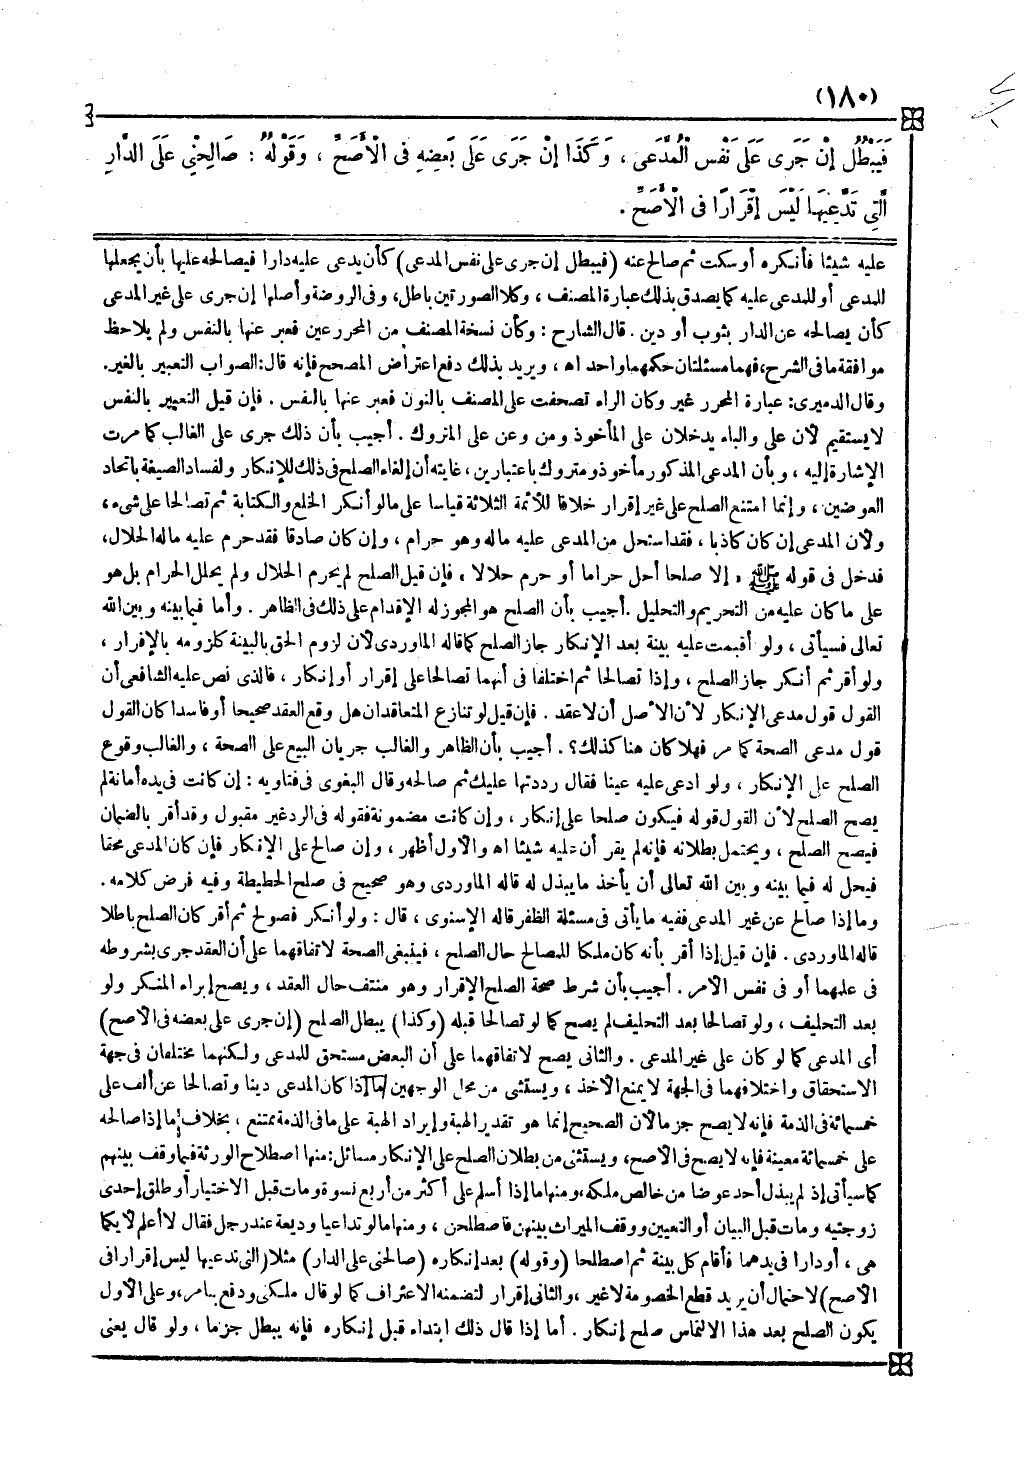 (١٨٠)
فَيَبْطُلُ إِنْ جَرَى عَلَى نَفْسِ الْمُدَّعَى ، وَكَذَا إِنْ جَرَى عَلَى بَعْضِهِ فِى الْأَصَحِّ ، وَقَوْلُهُ : صَالِحْنِى عَلَى الدَّارِ
الَّتِى تَدَّعِيهَا لَيْسَ إِقْرَارًا فِى الْأَصَحِّ .
عليه شيئا فأنكره أو سكت ثم صالح عنه (فيبطل إن جرى على نفس المدعى) كأن يدعى عليه دارا فيصالحه عليها بأن يجعلها
للمدعى أو للمدعى عليه كما يصدق بذلك عبارة المصنف ، وكلا الصورتين باطل، وفى الروضة وأصلها إن جرى على غير المدعى
كأن يصالحه عن الدار بثوب أو دين . قال الشارح : وكأن نسخة المصنف من المحرر عين فعبر عنها بالنفس ولم يلاحظ
موافقة ما فى الشرح، فهما مسئلتان حكمهما واحد اه ، ويريد بذلك دفع اعتراض المصحح فإنه قال: الصواب التعبير بالغير.
وقال الدميرى: عبارة المحرر غير وكان الراء تصحفت على المصنف بالنون فعبر عنها بالنفس . فإن قيل التعبير بالنفس
لا يستقيم لأن على والباء يدخلان على المأخوذ ومن وعن على المتروك . أجيب بأن ذلك جرى على الغالب كما مرت
الإشارة إليه ، وبأن المدعى المذكور مأخوذ ومتروك باعتبارين ، غايته أن إلغاء الصلح فى ذلك للإنكار ولفساد الصيغة باتحاد
العوضين ، وإنما امتنع الصلح على غير إقرار خلافا للأئمة الثلاثة قياسا على ما لو أنكر الخلع والكتابة ثم تصالحا على شىء ،
ولأن المدعى إن كان كاذبا ، فقد استحل من المدعى عليه ماله وهو حرام ، وإن كان صادقا فقد حرم عليه ماله الحلال،
فدخل فى قوله ﷺ « إلا صلحا أحل حراما أو حرم حلالا » فإن قيل الصلح لم يحرم الحلال ولم يحلل الحرام بل هو
على ما كان عليه من التحريم والتحليل . أجيب بأن الصلح هو المجوز له الإقدام على ذلك فى الظاهر . وأما فيما بينه وبين الله
تعالى فسيأتى ، ولو أقيمت عليه بينة بعد الإنكار جاز الصلح كما قاله الماوردى لأن لزوم الحق بالبينة كلزومه بالإقرار ،
ولو أقر ثم أنكر جاز الصلح ، وإذا تصالحا ثم اختلفا فى أنهما تصالحا على إقرار أو إنكار ، فالذى نص عليه الشافعى أن
القول قول مدعى الإنكار لأن الأصل أن لا عقد . فإن قيل لو تنازع المتعاقدان هل وقع العقد صحيحا أو فاسدا كان القول
قول مدعى الصحة كما مر فهلا كان هنا كذلك؟ . أجيب بأن الظاهر والغالب جريان البيع على الصحة ، والغالب وقوع
الصلح على الإنكار ، ولو ادعى عليه عينا فقال رددتها عليك ثم صالحه وقال البغوى فى فتاويه : إن كانت فى يده أمانة لم
يصح الصلح لأن القول قوله فيكون صلحا على إنكار ، وإن كانت مضمونة فقوله فى الرد غير مقبول وقد أقر بالضمان
فيصح الصلح ، ويحتمل بطلانه فإنه لم يقر أن عليه شيئا اه والأول أظهر ، وإن صالح على الإنكار فإن كان المدعى محقا
فيحل له فيما بينه وبين الله تعالى أن يأخذ ما يبذل له قاله الماوردى وهو صحيح فى صلح الحطيطة وفيه فرض كلامه .
وما إذا صالح عن غير المدعى ففيه ما يأتى فى مسئلة الظفر قاله الإسنوى ، قال : ولو أنكر فصولح ثم أقر كان الصلح باطلا
قاله الماوردى . فإن قيل إذا أقر بأنه كان ملكا للمصالح حال الصلح ، فينبغى الصحة لاتفاقهما على أن العقد جرى بشروطه
فى علمهما أو فى نفس الأمر . أجيب بأن شرط صحة الصلح الإقرار وهو منتف حال العقد ، ويصح إبراء المنكر ولو
بعد التحليف ، ولو تصالحا بعد التحليف لم يصح كما لو تصالحا قبله (وكذا) يبطل الصلح (إن جرى على بعضه فى الأصح)
أى المدعى كما لو كان على غير المدعى . والثانى يصح لاتفاقهما على أن البعض مستحق للمدعى ولكنهما مختلفان فى جهة
الاستحقاق واختلافهما فى الجهة لا يمنع الأخذ ، ويستثنى من محل الوجهين ما إذا كان المدعى دينا وتصالحا عن ألف على
خمسمائة فى الذمة فإنه لا يصح جزما لأن الصحيح إنما هو تقدير الهبة وإيراد الهبة على ما فى الذمة ممتنع ، بخلاف ما إذا صالحه
على خمسمائة معينة فإنه لا يصح فى الأصح، ويستثنى من بطلان الصلح على الإنكار مسائل: منها اصطلاح الورثة فيما وقف بينهم
كما سيأتى إذ لم يبذل أحد عوضا من خالص ملكه، ومنها ما إذا أسلم على أكثر من أربع نسوة ومات قبل الاختيار أو طلق إحدى
زوجتيه ومات قبل البيان أو التعيين ووقف الميراث بينهن فاصطلحن ، ومنها ما لو تداعيا وديعة عند رجل فقال لا أعلم لأيكما
هى ، أو دارا فى يدهما فأقام كل بينة ثم اصطلحا (وقوله) بعد إنكاره (صالحنى على الدار) مثلا (التى تدعيها ليس إقرارا فى
الأصح) لاحتمال أن يريد قطع الخصومة لا غير ، والثانى إقرار لتضمنه الاعتراف كما لو قال ملكنى ودفع بما مر، وعلى الأول
يكون الصلح بعد هذا الالتماس صلح إنكار . أما إذا قال ذلك ابتداء قبل إنكاره فإنه يبطل جزما ، ولو قال بعنى